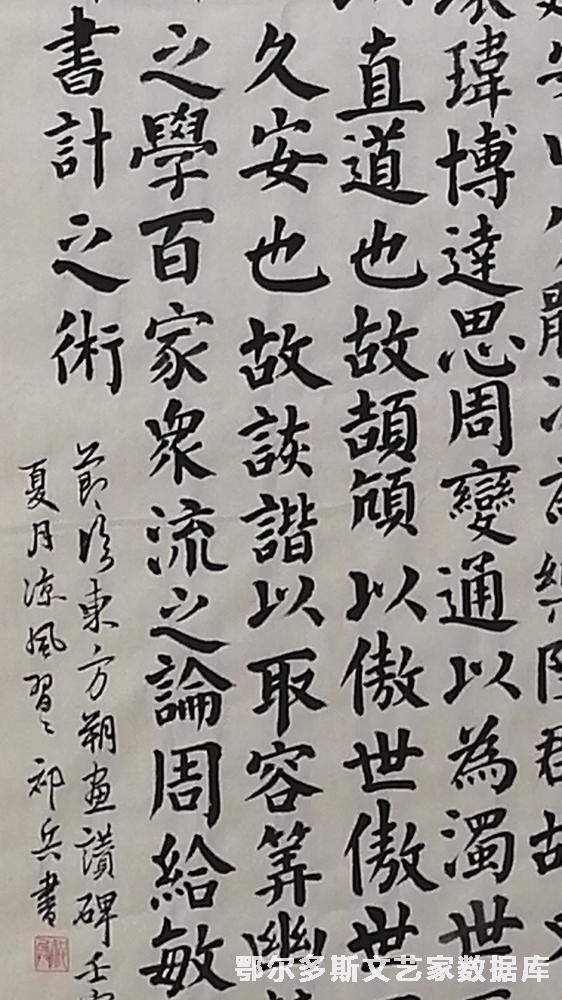 瑋博達思周變通以為濁世
直道也故頡頏以傲世傲世
久安也故談諧以取容筭幽
之學百家衆流之論周給敏
書計之術
節臨東方朔画讃碑壬寅
夏月凉風習〻祁兵書
鄂尔多斯文艺家数据库